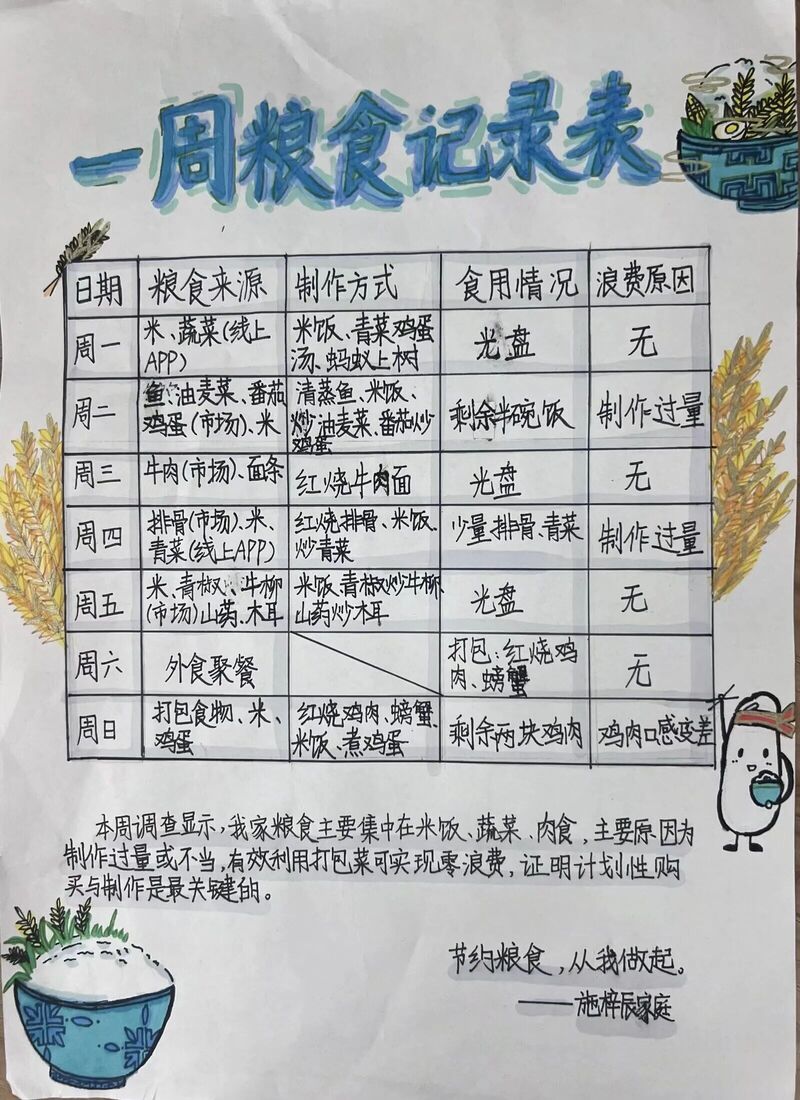 一周粮食记录表
日期 粮食来源 制作方式 食用情况 浪费原因
周一 米、蔬菜(线上APP) 米饭、青菜鸡蛋汤、蚂蚁上树 光盘 无
周二 鱼、油麦菜、番茄鸡蛋(市场)、米 清蒸鱼、米饭、炒油麦菜、番茄炒鸡蛋 剩余半碗饭 制作过量
周三 牛肉(市场)、面条 红烧牛肉面 光盘 无
周四 排骨(市场)、米、青菜(线上APP) 红烧排骨、米饭、炒青菜 少量排骨、青菜 制作过量
周五 米、青椒、牛柳(市场)山药、木耳 米饭、青椒炒牛柳、山药炒木耳 光盘 无
周六 外食聚餐 打包:红烧鸡肉、螃蟹 无
周日 打包食物、米、鸡蛋 红烧鸡肉、螃蟹、米饭、煮鸡蛋 剩余两块鸡肉 鸡肉口感变差
本周调查显示,我家粮食主要集中在米饭、蔬菜、肉食,主要原因为
制作过量或不当,有效利用打包菜可实现零浪费,证明计划性购
买与制作是最关键的。
节约粮食,从我做起。
——施梓辰家庭